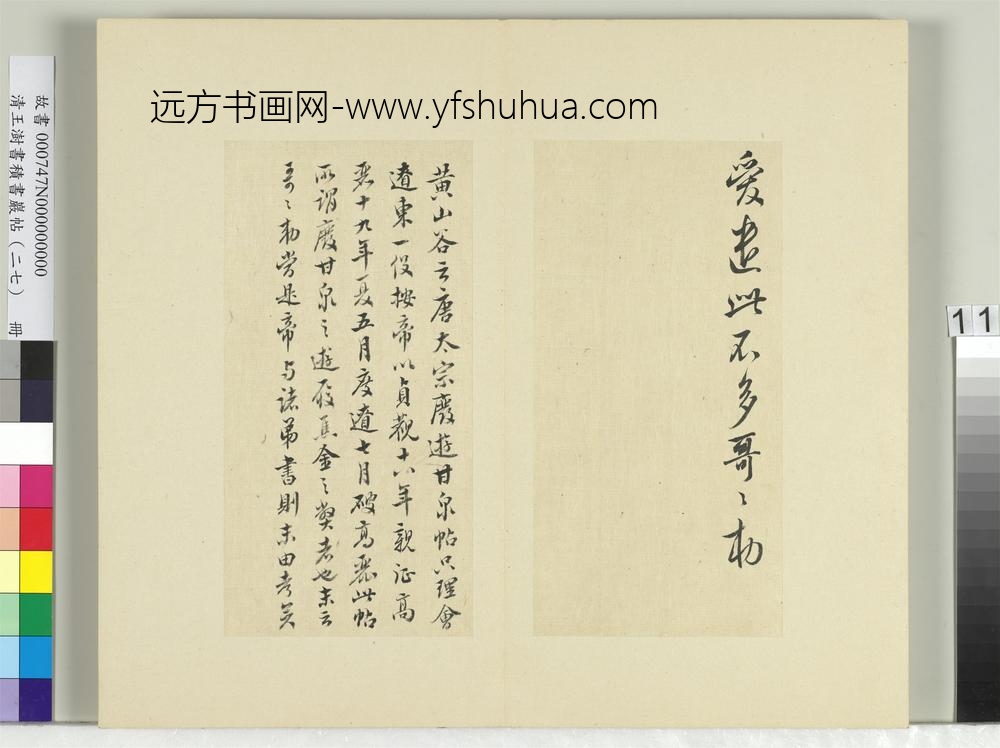 远方书画网-www.yfshuhua.com
愛遣此不多哥〻勅
黄山谷云唐太宗廢遊甘泉帖只理會
遼東一役按帝以貞觀十八年親征高
麗十九年夏五月度遼七月破高麗此帖
所謂廢甘泉之遊履金之獘者也末云
哥〻勅當是帝与諸弟書則未由考矣
故書 000747N000000000
清王澍書積書巖帖（二七） 冊
11